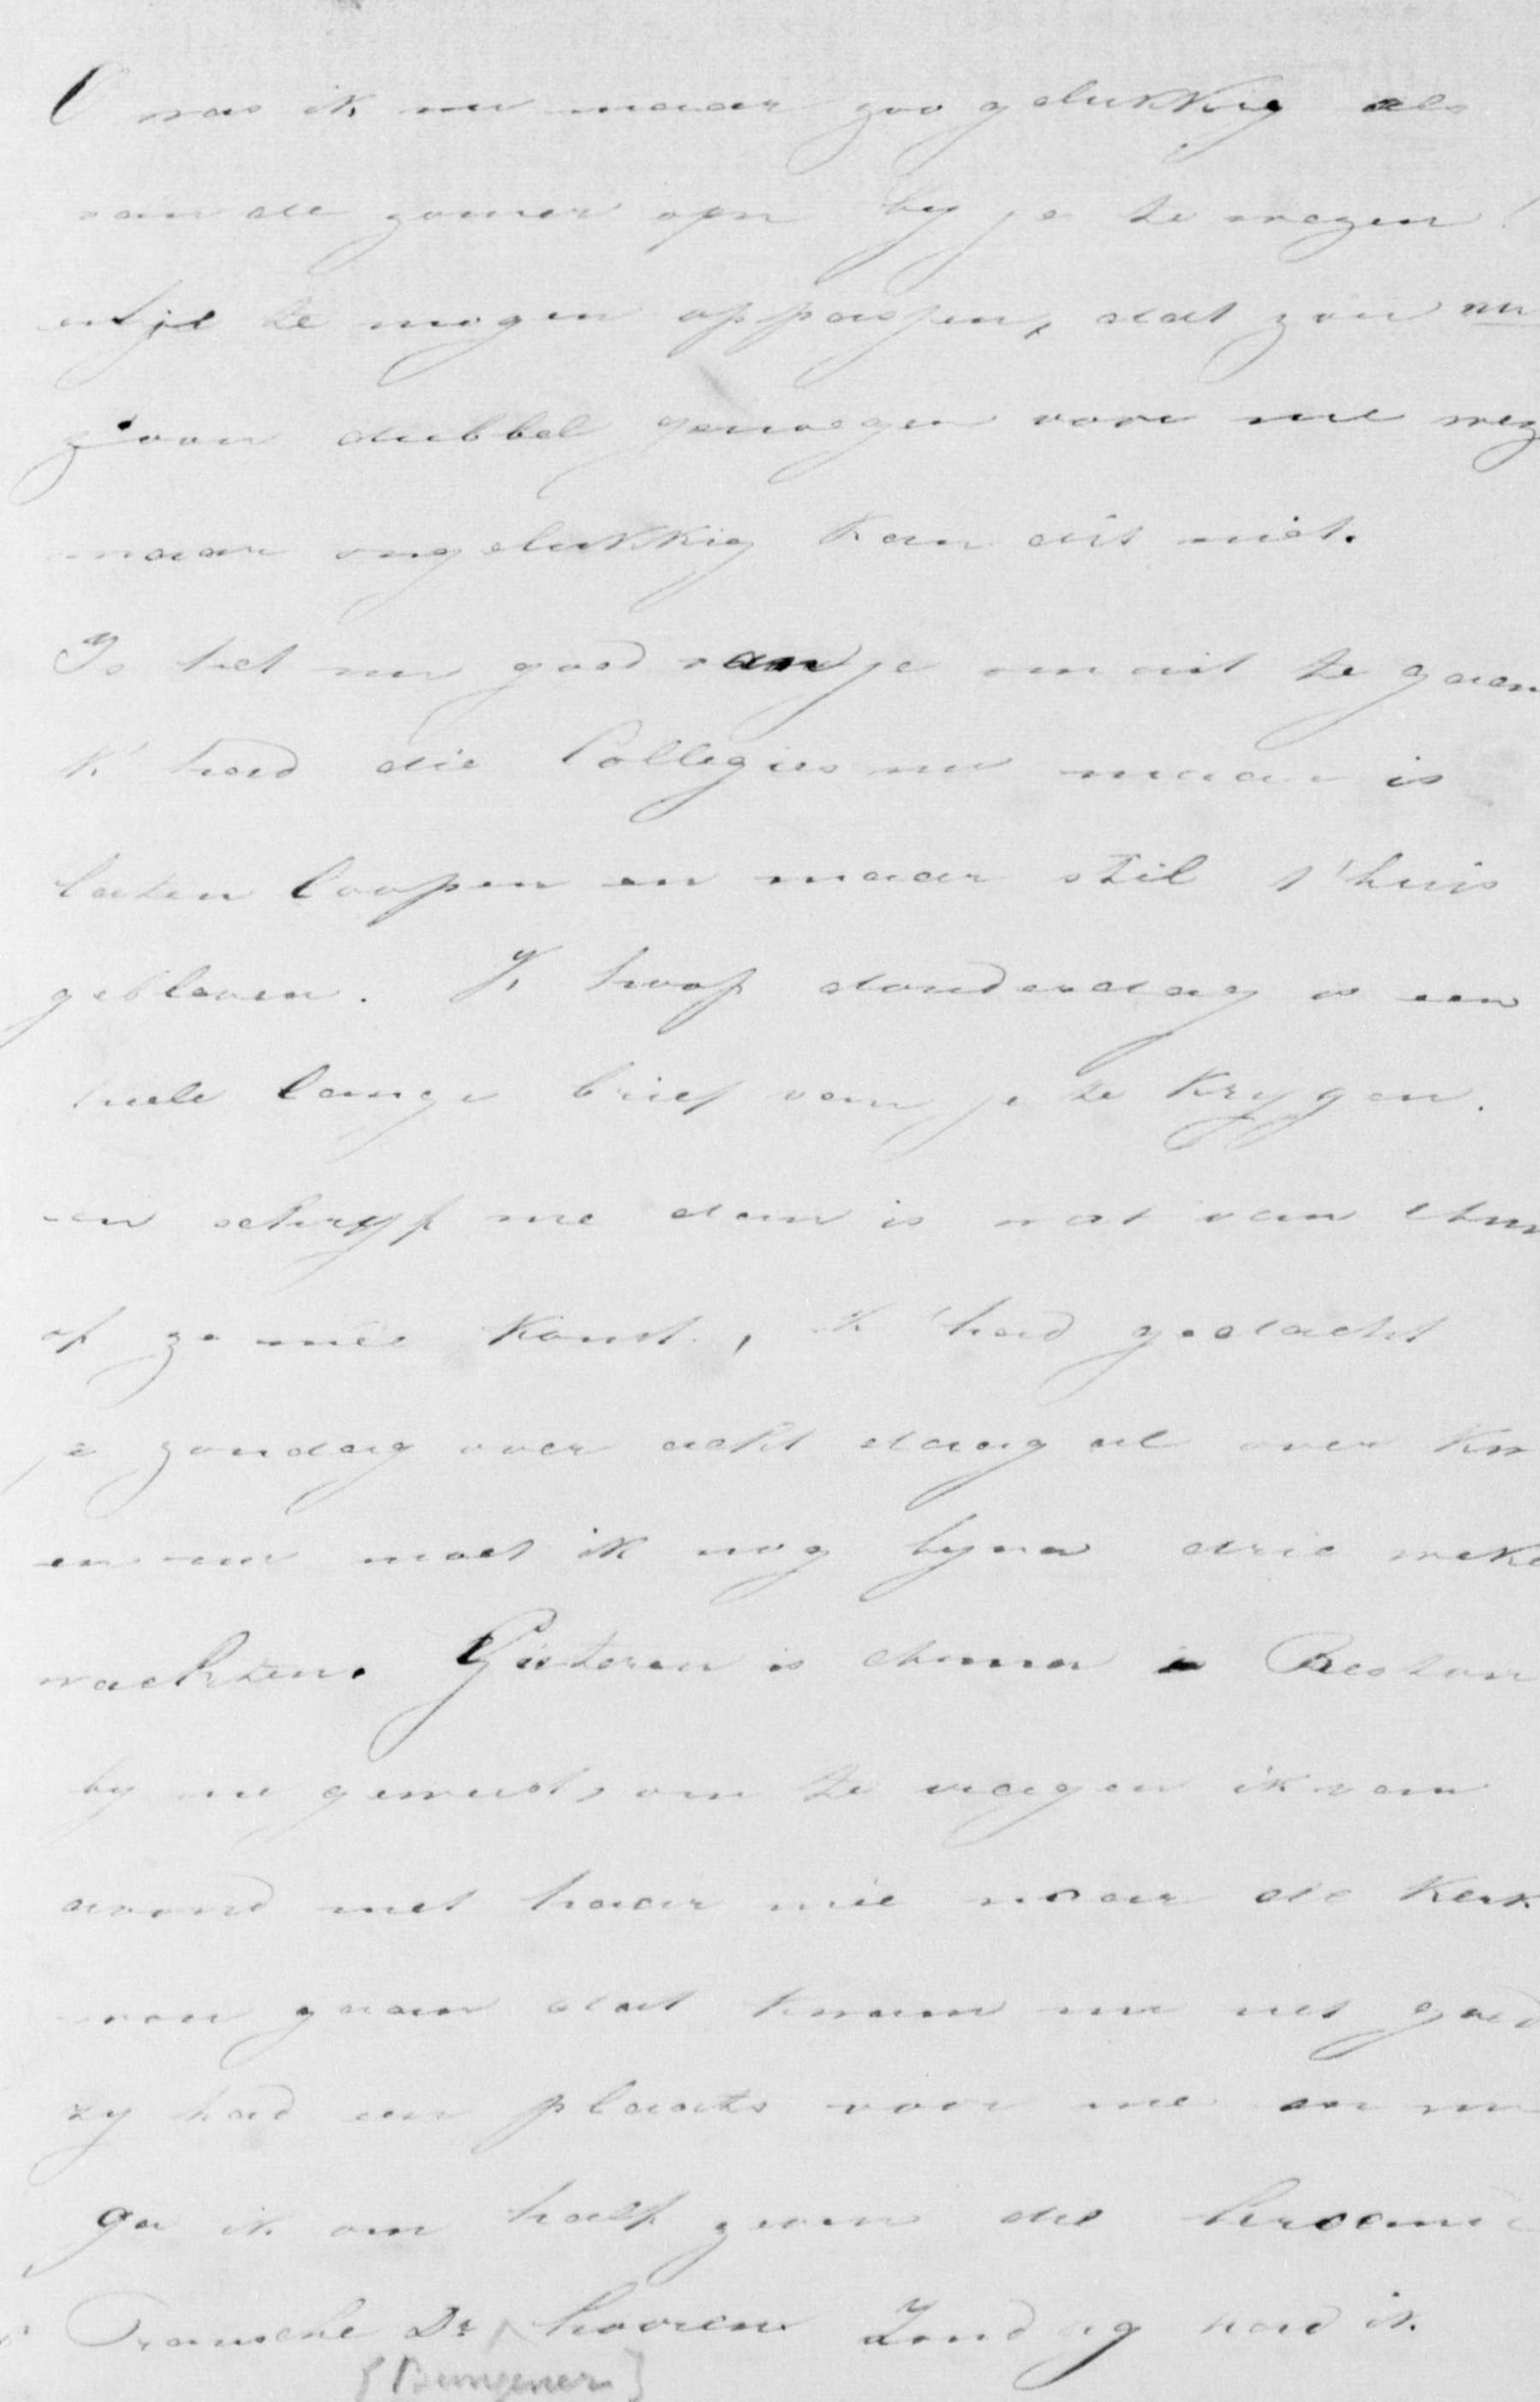 O was ik nu maar zoo gelukkig als
van de zomer om by je te wezen!
en je te mogen oppassen, dat zou nu
zoon dubbel genoegen voor me wez
maar ongelukkig kan dit niet.
Is het nu goed van je om uit te gaan
k' had die Collegies nu maar is
laten loopen en maar stil t'huis
gebleven. Ik hoop donderdag een
hele lange brief van je te krygen.
en schryf me dan is wat van
of ze mée komt, ik had gedacht
je zondag over acht daag al over
en nu moet ik nog byna drie weke
wachten. Gisteren is
by me geweest, om te vragen ik van
avond met haar mée naar de Kerk
wou gaan dat kwam me net goed
zy had een plaats voor me en nu
ga ik om half zeven de beroemde
Fransche Ds hooren Zondag had ik
[Bungener]